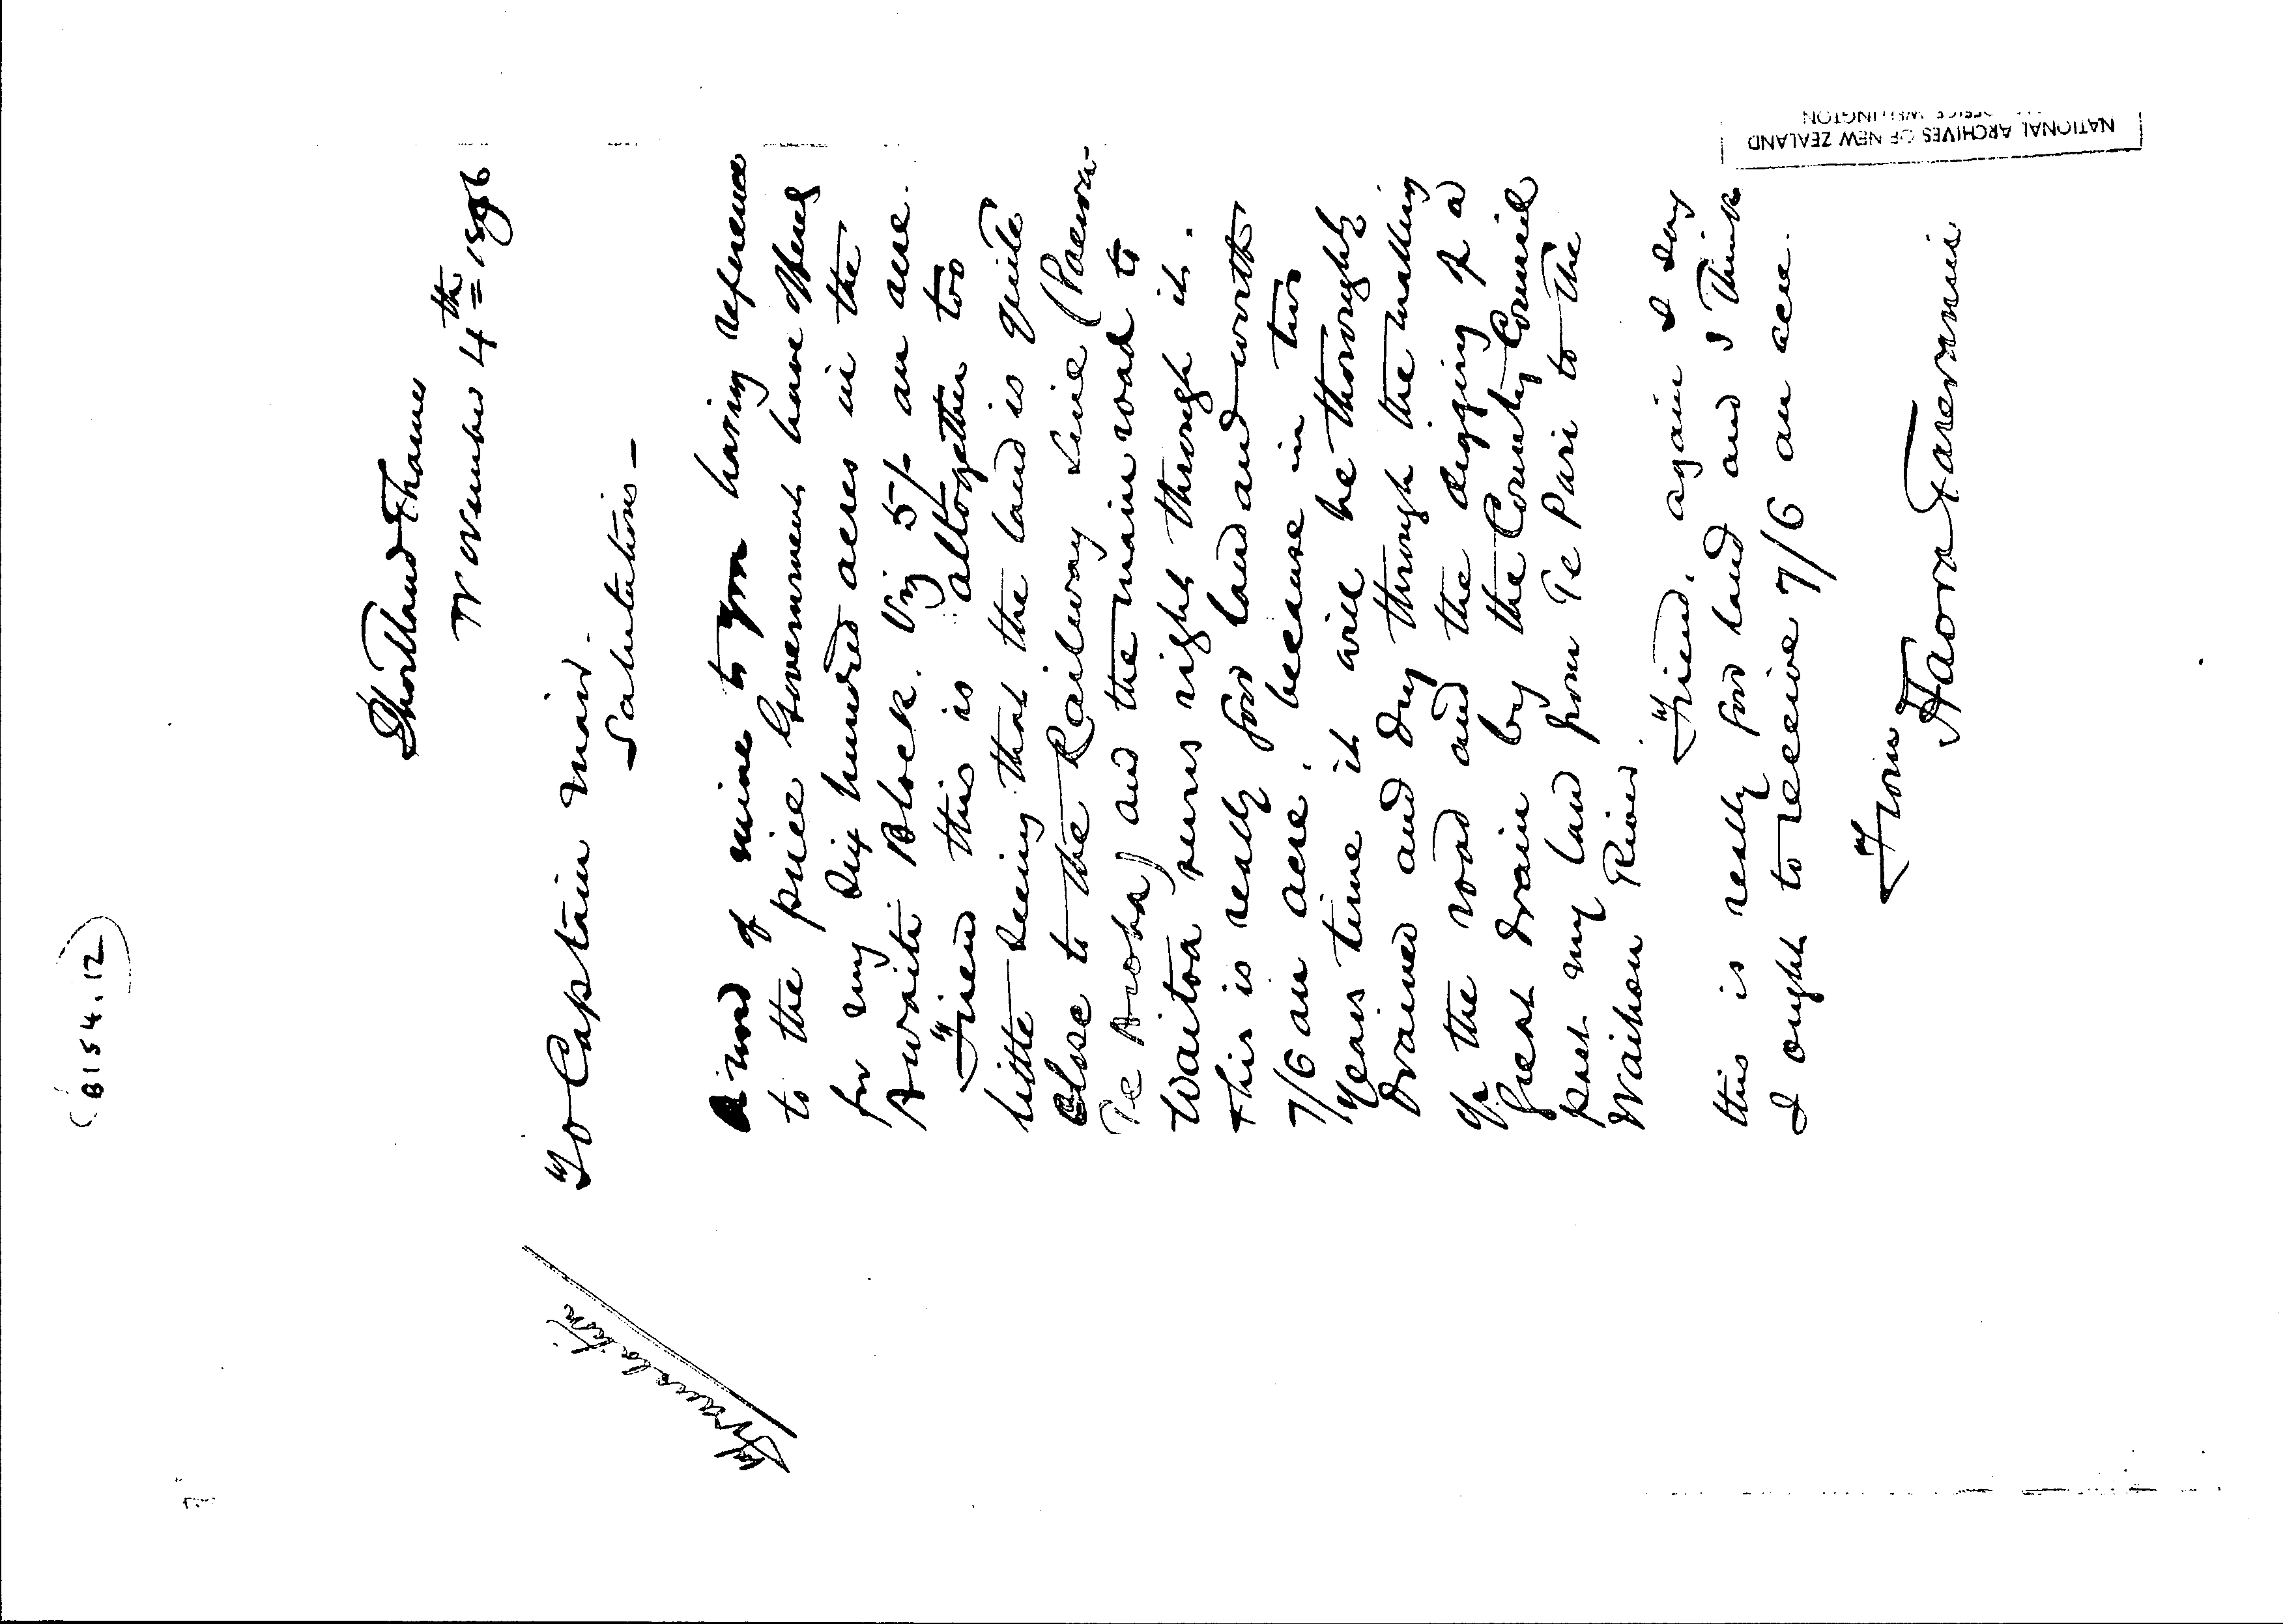 B154.12
Shortland Thames
November 4th = 1896
Translation
To Captain Mair.
Salutations —
A word of mine to you having reference
to the price Government have offered
for my six hundred acres in the
Awaiti Block. Viz 5/- an acre.
Friend this is altogether too
little seeing that the land is quite
close to the Railway Line (Paeroa
Te Aroha) and the main road to
Waitoa runs right through it.
This is really good land and worth
7/6 an acre. because in two
years time it will be thoroughly
drained and dry through the making
of the road and the digging of a
great drain by the County Council
past my land from Te Pari to the
Waihou River.
Friend, again I say
this is really good land and I think
I ought to receive 7/6 an acre.
From
Haora Tareranui
NATIONAL ARCHIVES OF NEW ZEALAND
OFFICE WELLINGTON